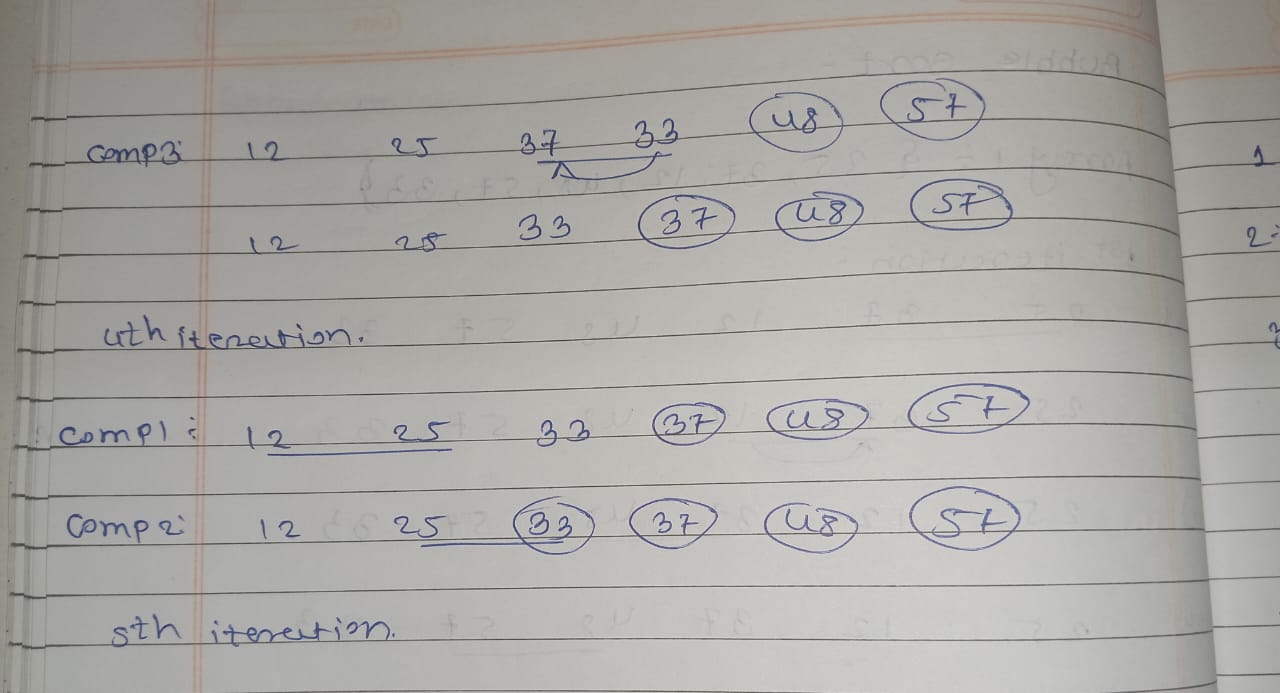 comp3: 12 25 37 33 48 57
12 25 33 37 48 57
4th iteration.
comp1: 12 25 33 37 48 57
comp2: 12 25 33 37 48 57
5th iteration.
1
2